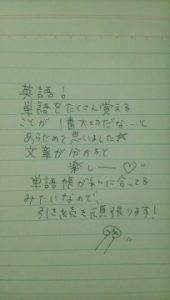 英語!
単語をたくさん覚える
ことが1番大切だな…と
あらためて思いました☆
文章が分かると
楽しーー♡
単語帳が私に合ってる
みたいなので、
引き続き頑張ります!